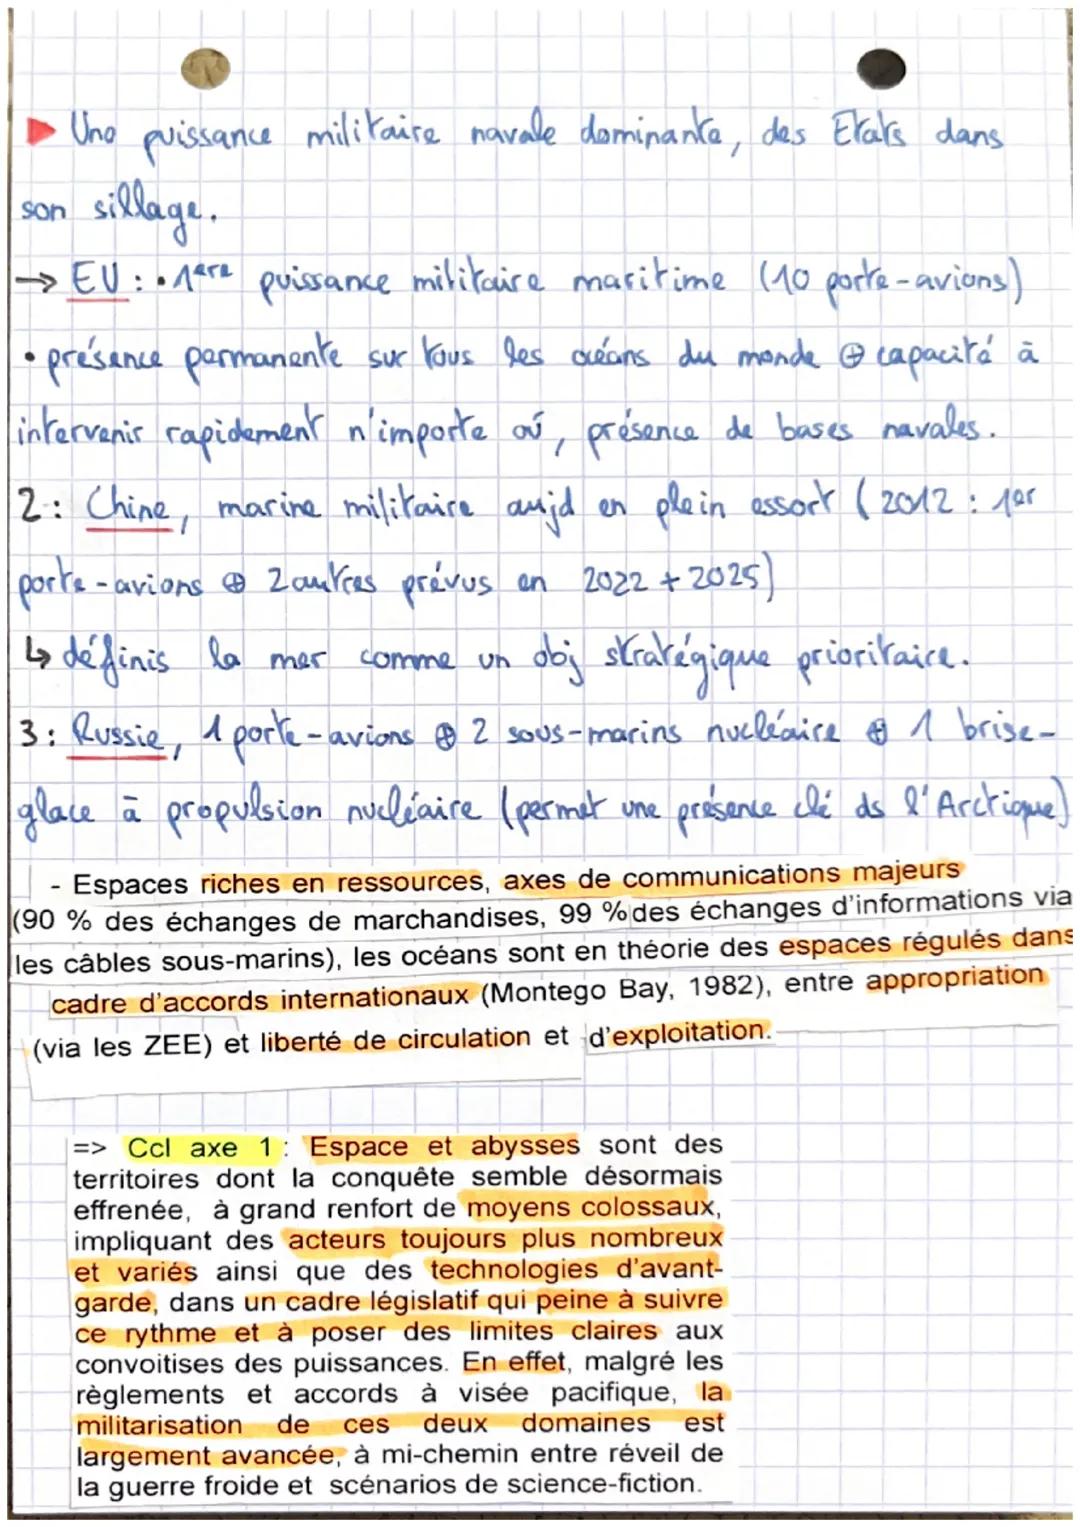 Une puissance militaire navale dominante, des Etats dans
son sillage.
→ EU : • 1ère puissance militaire maritime (10 porte-avions)
• présence permanente sur tous les océans du monde ⊕ capacité à
intervenir rapidement n'importe où, présence de bases navales.
2 : Chine, marine militaire aujd en plein essort (2012 : 1er
porte-avions ⊕ 2 autres prévus en 2022 + 2025)
↳ définis la mer comme un obj stratégique prioritaire.
3 : Russie, 1 porte-avions ⊕ 2 sous-marins nucléaire ⊕ 1 brise-
glace à propulsion nucléaire (permet une présence clé ds l'Arctique)
- Espaces riches en ressources, axes de communications majeurs
(90 % des échanges de marchandises, 99 % des échanges d'informations via
les câbles sous-marins), les océans sont en théorie des espaces régulés dans
cadre d'accords internationaux (Montego Bay, 1982), entre appropriation
(via les ZEE) et liberté de circulation et d'exploitation.
=> Ccl axe 1 : Espace et abysses sont des
territoires dont la conquête semble désormais
effrenée, à grand renfort de moyens colossaux,
impliquant des acteurs toujours plus nombreux
et variés ainsi que des technologies d'avant-
garde, dans un cadre législatif qui peine à suivre
ce rythme et à poser des limites claires aux
convoitises des puissances. En effet, malgré les
règlements et accords à visée pacifique, la
militarisation de ces deux domaines est
largement avancée, à mi-chemin entre réveil de
la guerre froide et scénarios de science-fiction.